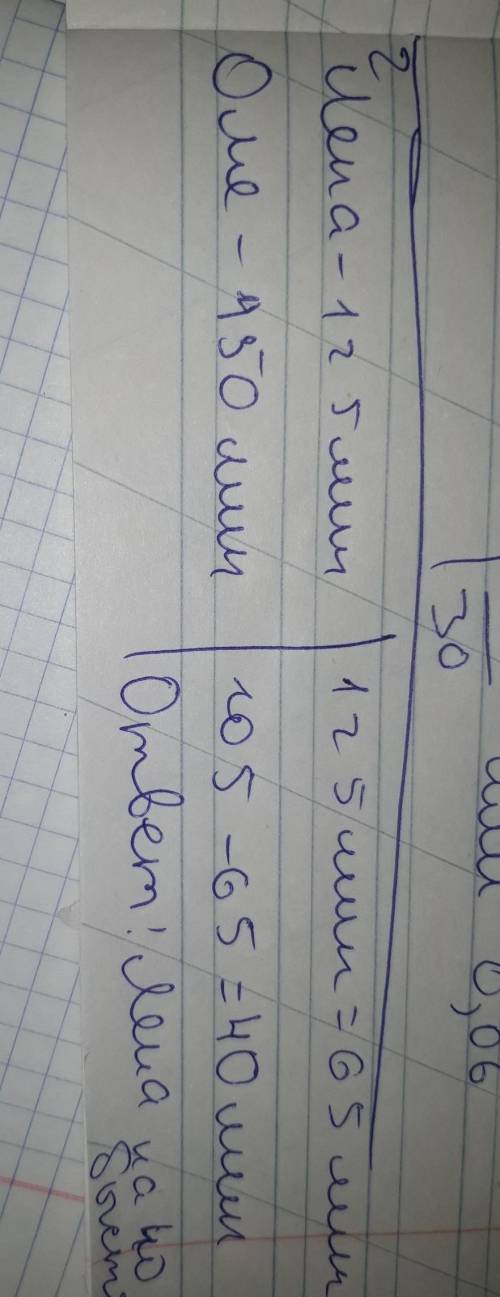 30
мин 0,06
2 Лена - 125 мин
Оле - 150 мин
125 мин = 65 мин
105 - 65 = 40 мин
Ответ: Лена на 40